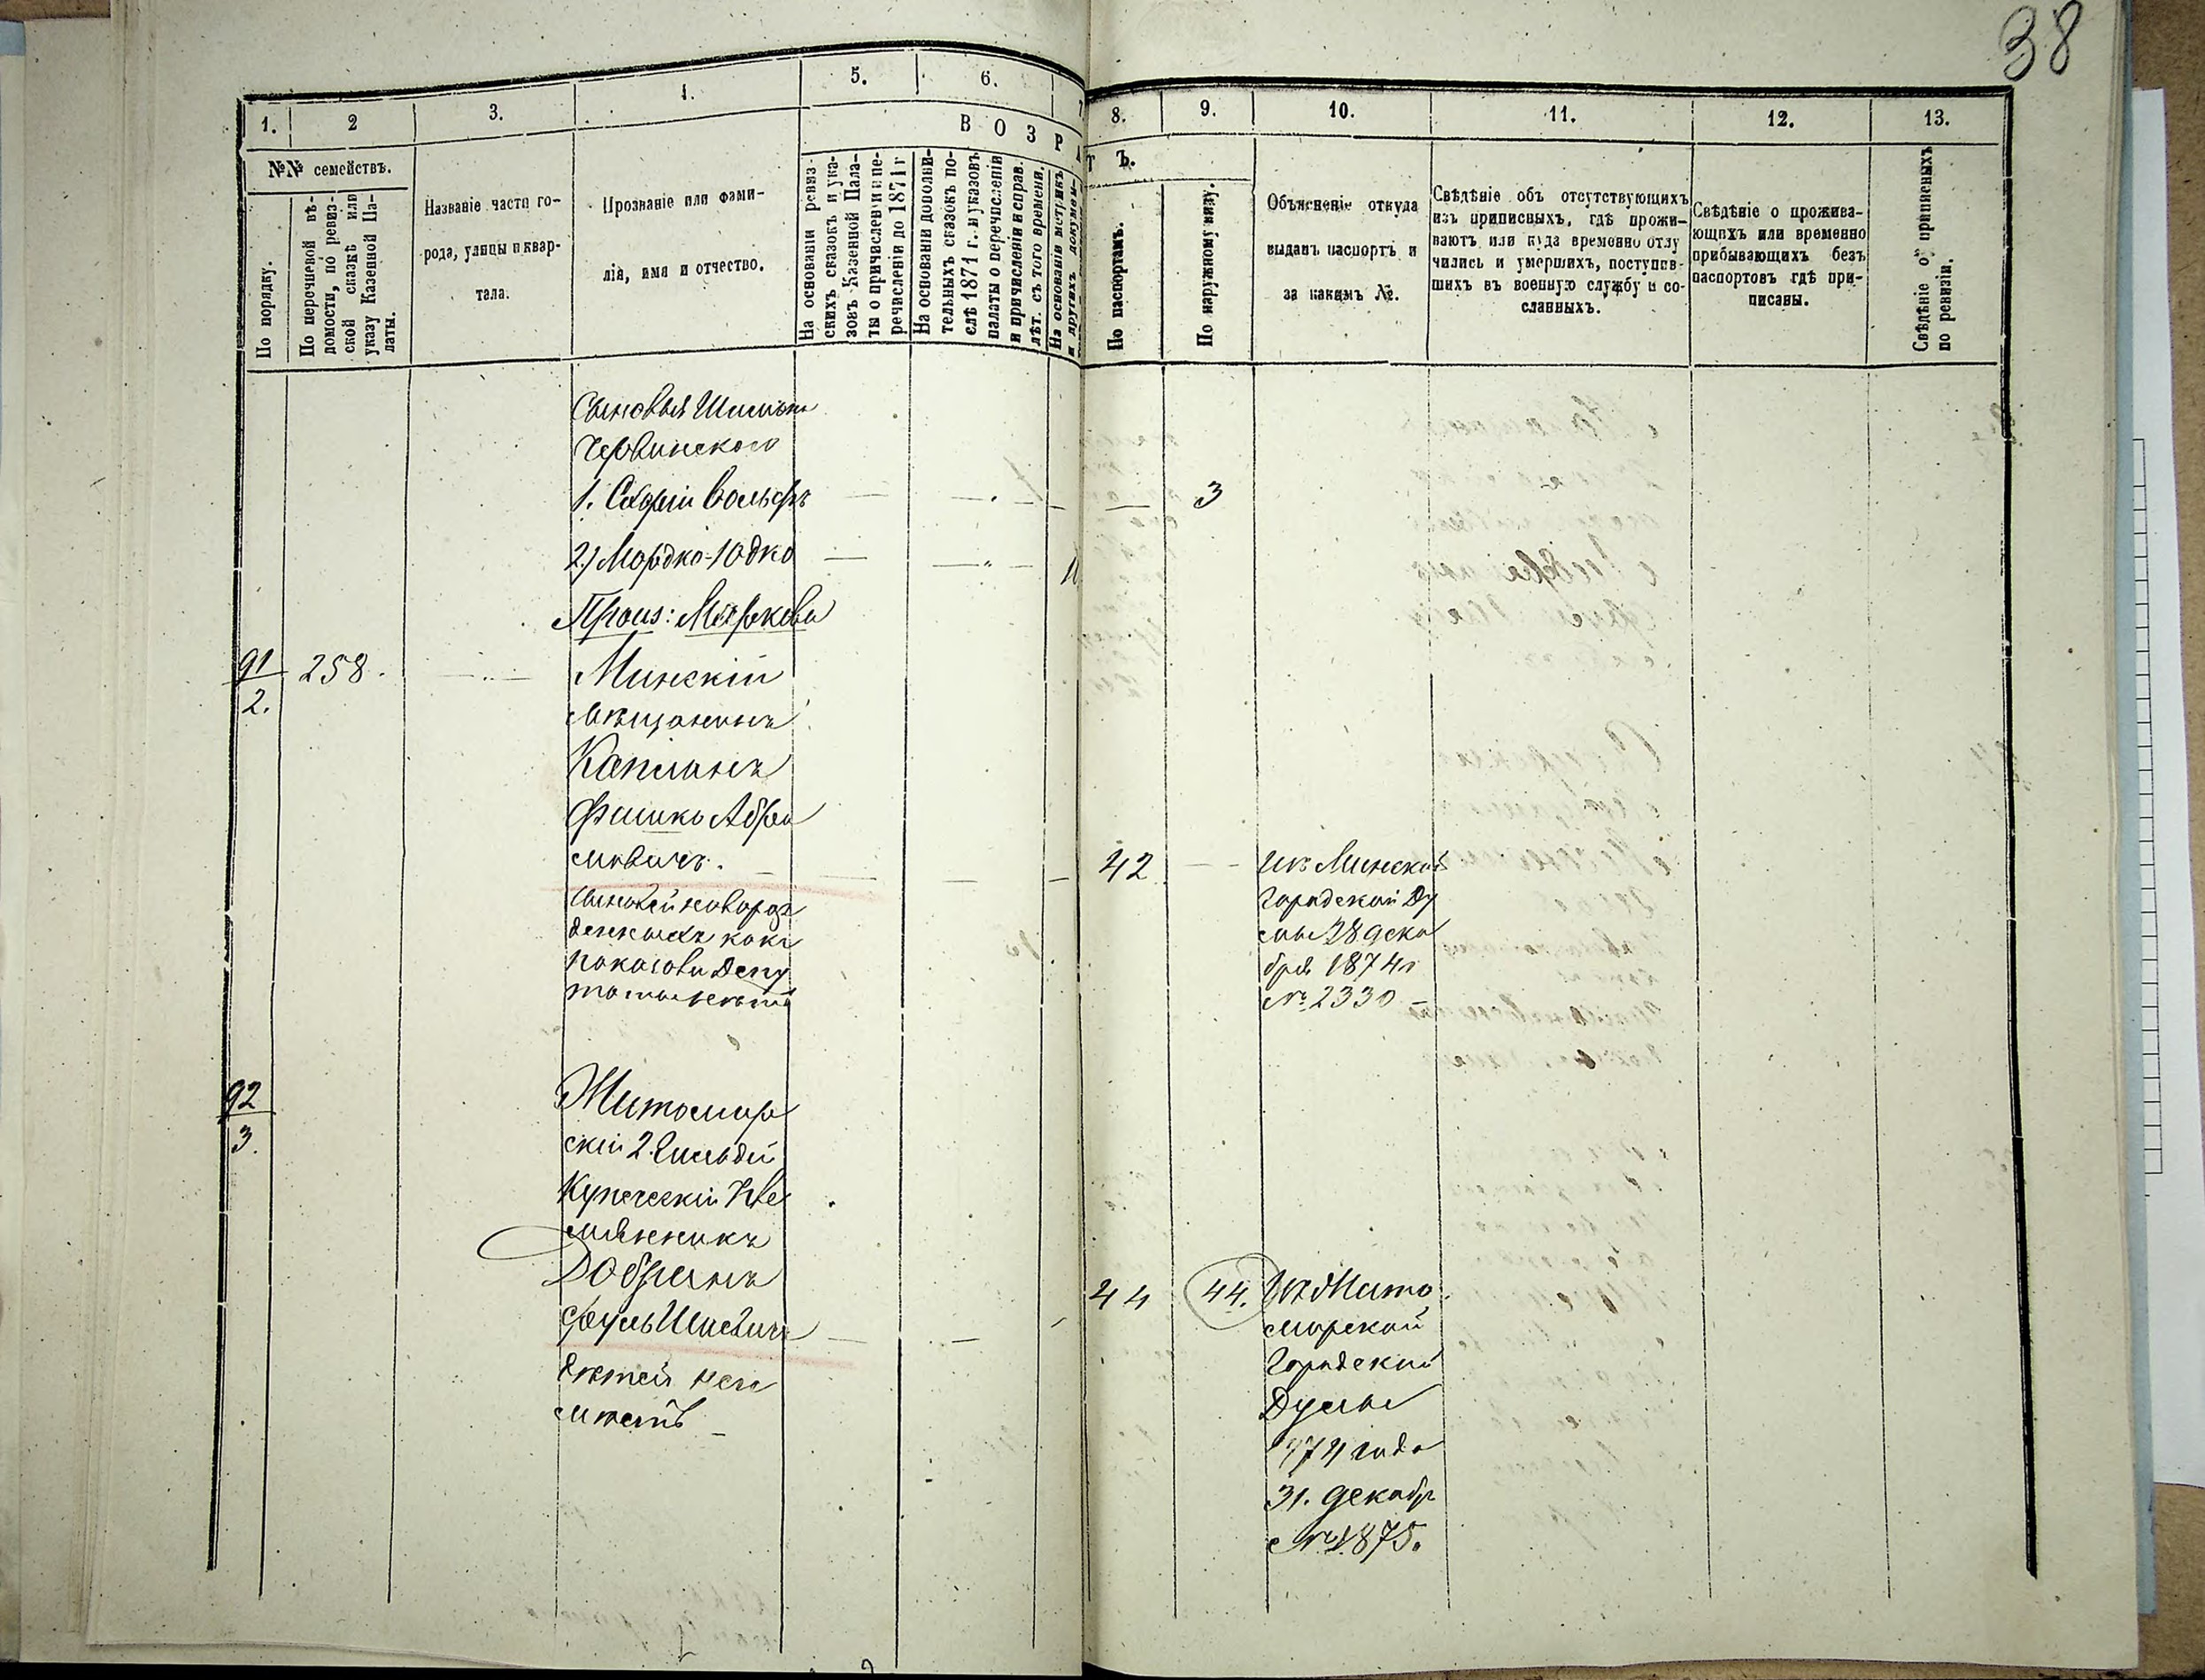 38
1.
2
3.
4.
5.
6.
7
8.
9.
10.
11.
12.
13.
ВОЗРА
ТЪ.
№№ семействъ.
По порядку.
По перечневой вѣ-
домости, по ревиз-
ской сказкѣ или
указу Казенной Па-
латы.
Названіе части го-
рода, улицы и квар-
тала.
Прозваніе или фами-
лія, имя и отчество.
На основаніи ревиз-
скихъ сказокъ и ука-
зовъ Казенной Пала-
ты о причисленіи и пе-
речисленіи до 1871 г
На основаніи дополни-
тельныхъ сказокъ по-
слѣ 1871 г. и указовъ
палаты о перечисленіи
и причисленіи и справ.
лѣт. съ того времени.
На основаніи метрикъ
и другихъ докумен-
По паспортамъ.
По наружному виду.
Объясненіе откуда
выданъ паспортъ и
за какимъ №.
Свѣдѣніе объ отсутствующихъ
изъ приписныхъ, гдѣ прожи-
ваютъ или куда временно отлу
чились и умершихъ, поступив-
шихъ въ военную службу и со-
сланныхъ.
Свѣдѣніе о прожива-
ющихъ или временно
прибывающихъ безъ
паспортовъ гдѣ при-
писаны.
Свѣдѣніе о приписныхъ
по ревизіи.
Сыновья
Червинскаго
1. Вольфъ
3
2) Мордко-Юдко
11
Проиў: Маркова
91
2.
258.
Минскій
мѣщанинъ
Капланъ
Фишко Абра
мовичъ.
42
Изъ Минской
Городской Ду
мы 28 дека
бря 1874 г
№ 2330
сыновей новорож
денныхъ какъ
показовъ депу
92
3.
Житомир
скій 2. Гильдіи
Купеческій Пле
мянникъ
Добринъ
Сруль
44
44.
Изъ Жито
мирской
Городской
Думы
874 года
31. декабр
№ 1875.
дѣтей не
имѣетъ